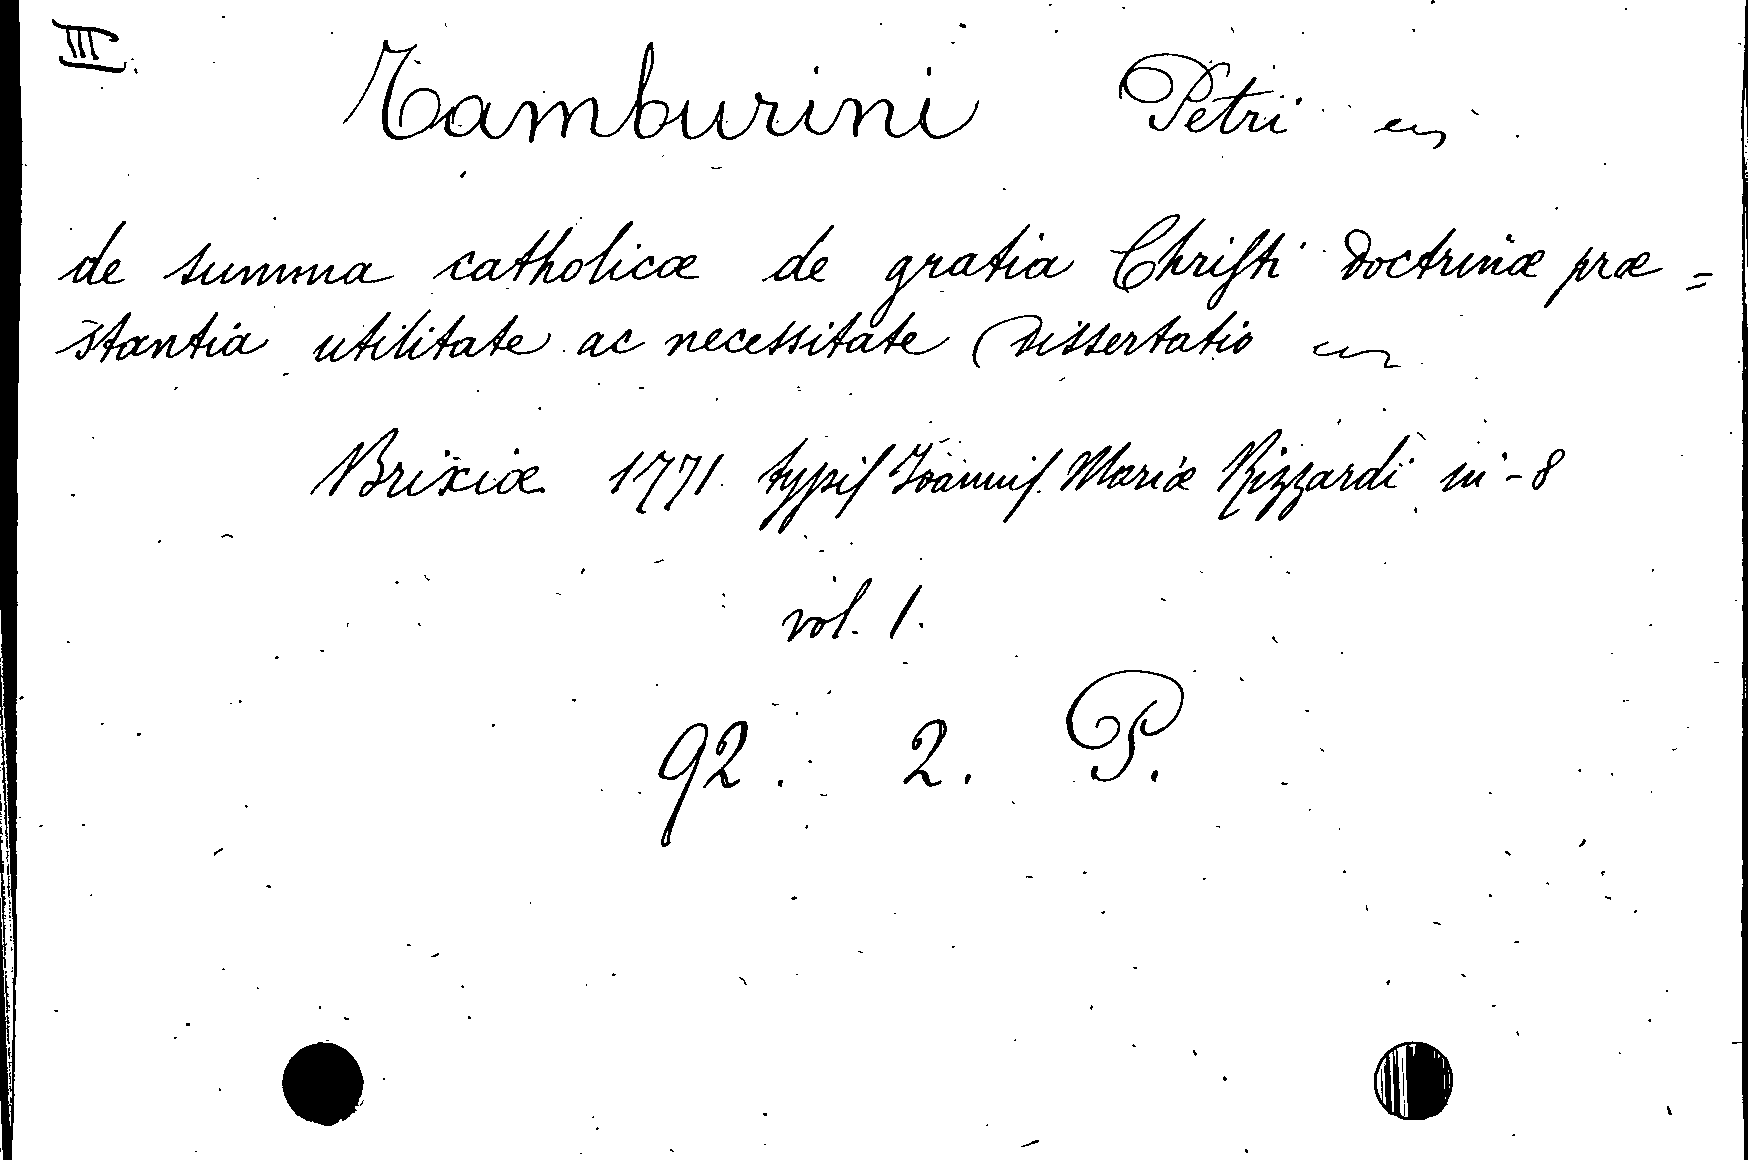 III.
Tamburini Petri
de summa catholicæ de gratia Christi doctrinæ præ=
stantia utilitate ac necessitate Dissertatio
Brixiæ 1771 typis Joannis Mariæ Rizzardi in-8
vol. 1.
92. 2. P.